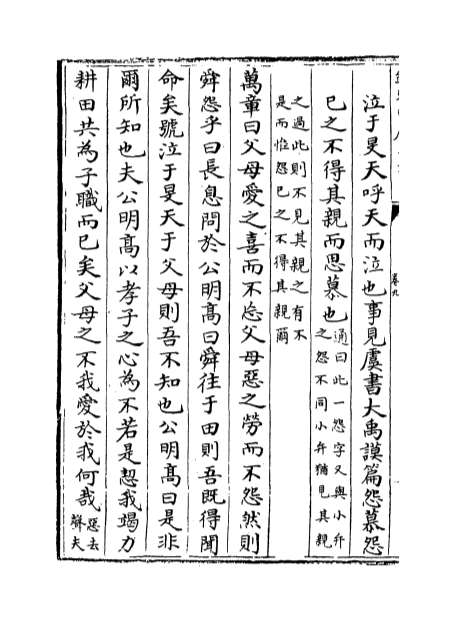 卷九
泣于旻天呼天而泣也事見虞書大禹謨篇怨慕怨
己之不得其親而思慕也通曰此一怨字又與小弁
之怨不同小弁猶見其親
之過此則不見其親之有不
是而惟怨己之不得其親爾
萬章曰父母愛之喜而不忘父母惡之勞而不怨然則
舜怨乎曰長息問於公明高曰舜往于田則吾既得聞
命矣號泣于旻天于父母則吾不知也公明高曰是非
爾所知也夫公明高以孝子之心為不若是恝我竭力
耕田共為子職而已矣父母之不我愛於我何哉惡去
聲夫